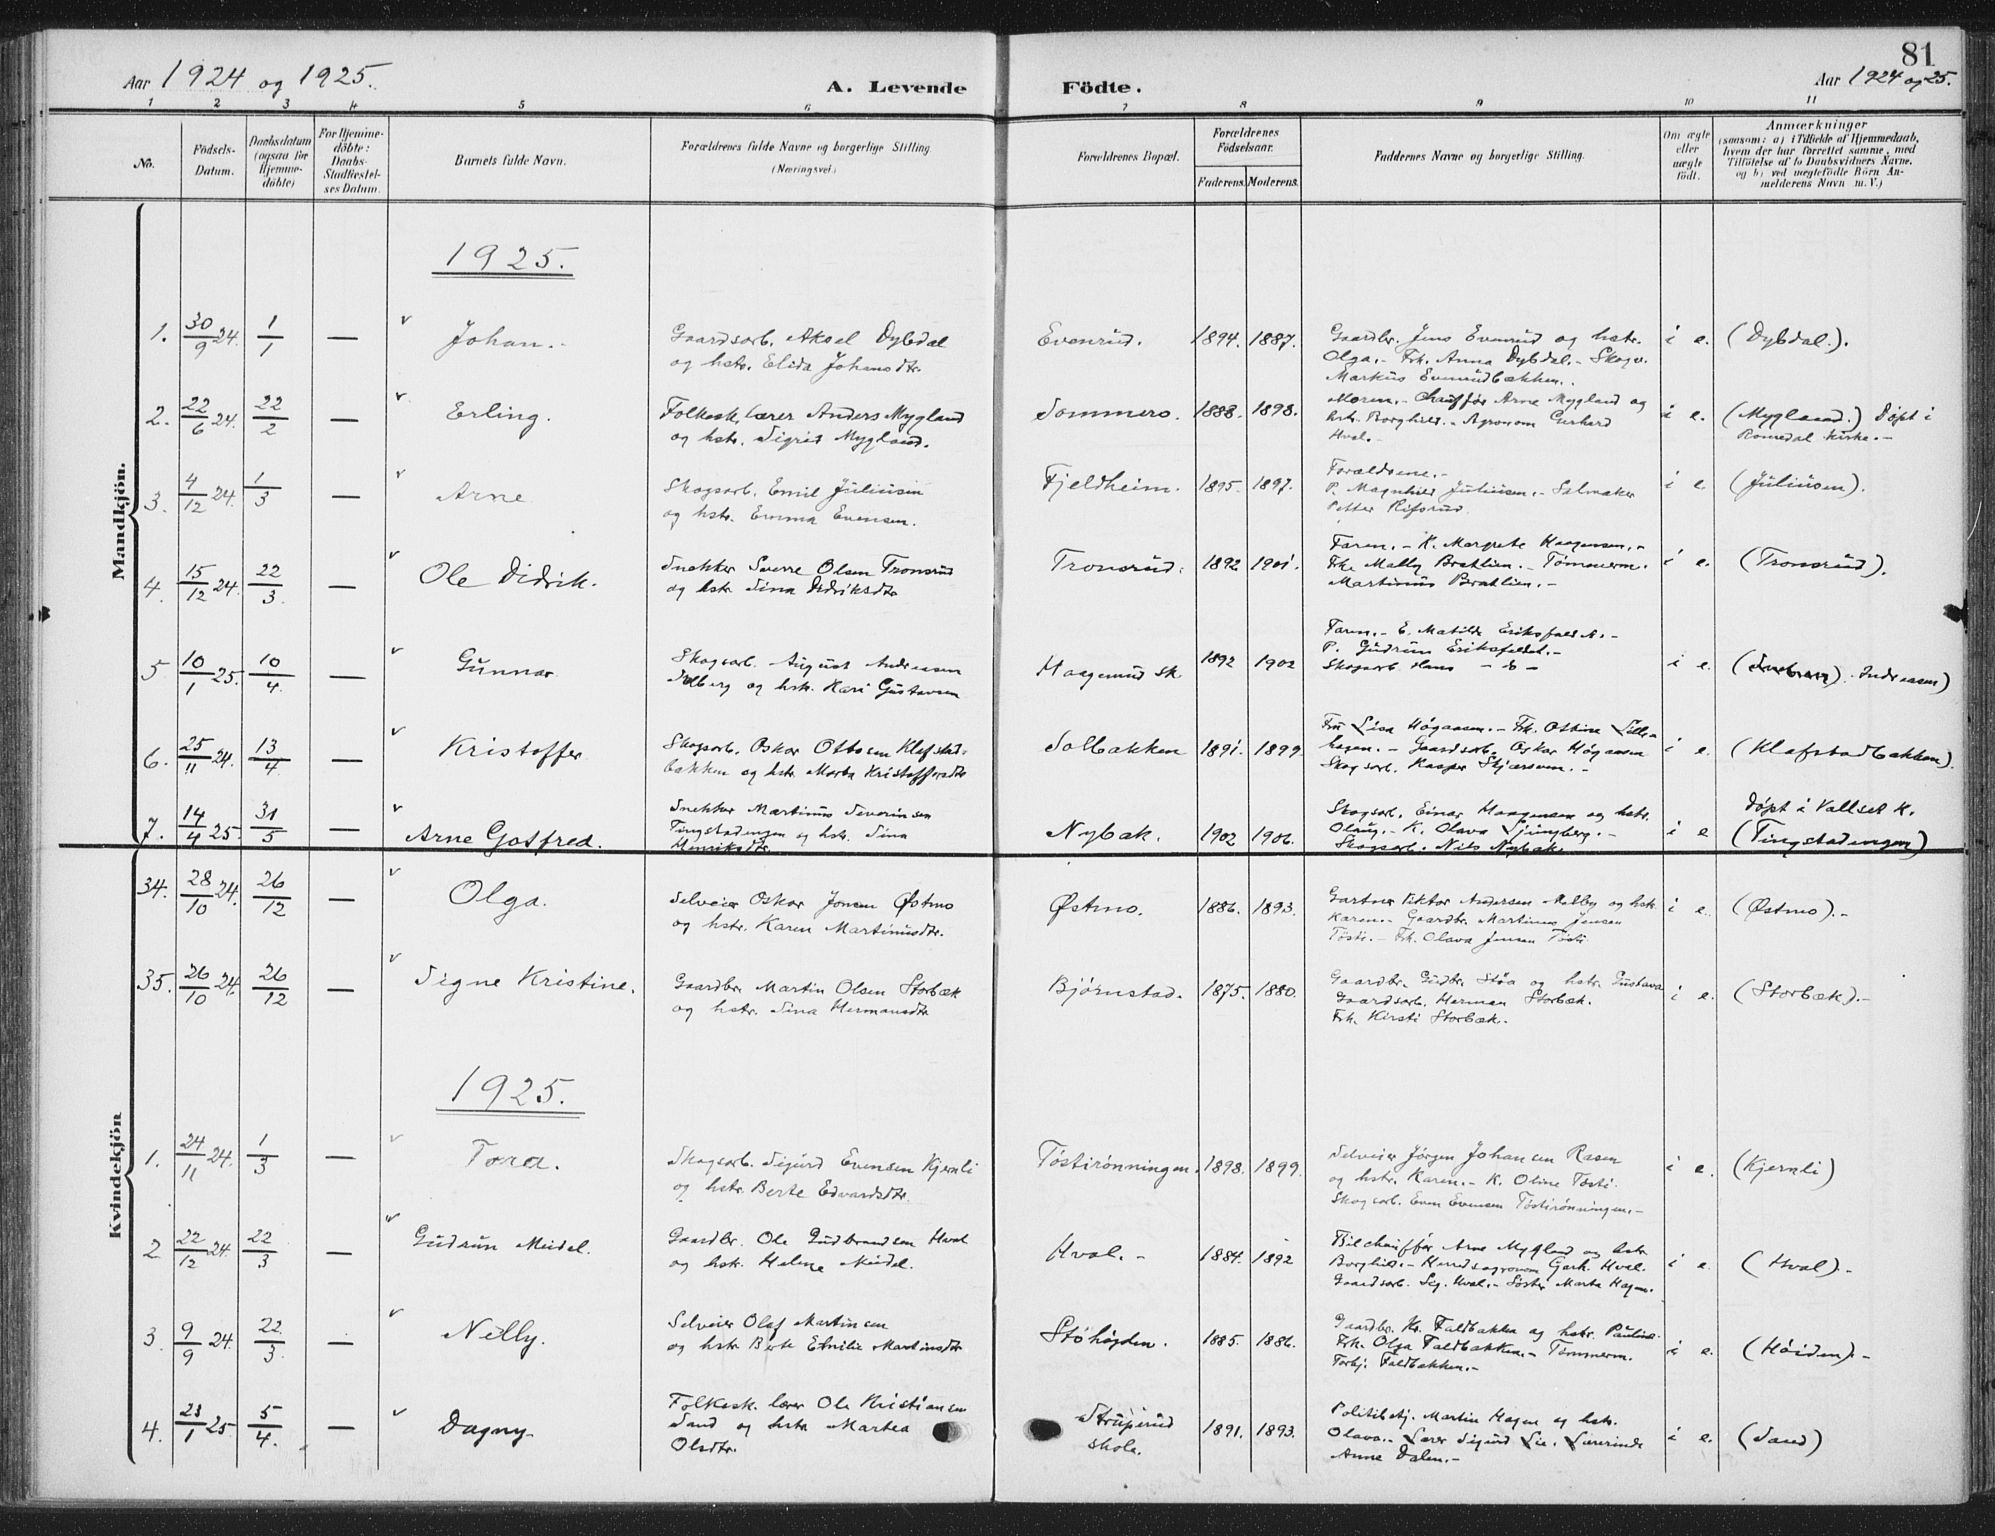 81
Aar 1924 og 1925.
A. Levende Födte.
Aar 1924 og 25.
1 2 3 4 5 6 7 8 9 10 11
No.
Födsels-
Datum.
Daabsdatum
(ogsaa for
Hjemme-
döbte)
For Hjemme-
döbte:
Daabs-
Stadfæstel-
ses Datum.
Barnets fulde Navn.
Forældrenes fulde Navne og borgerlige Stilling
(Næringsvei.)
Forældrenes Bopæl.
Forældrenes
Födselsaar.
Faderens. Moderens.
Faddernes Navne og borgerlige Stilling.
Om ægte
eller
uægte
födt.
Anmærkninger
(saasom: a) i Tilfælde af Hjemmedaab,
hvem der har forrettet samme, med
Tilföielse af to Daabsvidners Navne.
og b) ved uægtefödte Börn An-
melderens Navn m. V.)
Mandkjön.
1925.
1. 30/9 24. 1/1 — Johan.-
Gaardsarb. Aksel Dybdal
og hstr. Elida Johansdtr.
Evenrud. 1894. 1887.
Gaardbr. Jens Evenrud og hstr.
Olga.- Frk. Anna Dybdal.- Skogv.
Markus Evenrudbakken.
i e. (Dybdal.).
2. 22/6 24. 22/2 — Erling.
Folkesk. lærer Anders Mygland
og hstr. Sigrid Mygland.
Sommero. 1888. 1898.
Moren.- Chauffør Arne Mygland og
hstr. Borghild.- Agronom Gerhard
Hval.-
i e. (Mygland.) Døpt i
Romedal kirke.-
3. 4/12 24. 1/3 — Arne
Skogsarb. Emil Juliussen
og hstr. Emma Evensen.
Fjeldheim. 1895. 1897.
Forældrene.-
P. Magnhild Juliussen.- Salmaker
Petter Rifsrud
i e. (Juliusen).
4. 15/12 24. 22/3. — Ole Didrik.
Snekker Sverre Olsen Tronsrud
og hstr. Sina Didriksdtr
Tronsrud. 1892 1901.
Faren.- K. Margrete Haagensen.-
Frk. Mally Bratlien.- Tømmerm.
Martinus Bratlien.-
i e. (Tronsrud).
5 10/1 25. 10/4. — Gunnar
Skogsarb. August Andreassen
og hstr. Kari Gustavsen
Haagenrud sk 1892 1902
Faren.- E. Matilde
P. Gudrun
Skogsarb. Hans
i e.
6. 25/11 24. 13/4 — Kristoffer
Skogsarb. Oskar Ottosen Klafstad-
bakken og hstr. Marta Kristoffersdtr
Solbakken 1891. 1899
Fru Lisa Høgaasen.- Frk. Othine Lille-
hagen.- Gaardsarb. Oskar Høgaasen
Skogsarb. Kasper
i e. (Klafstadbakken).
7. 14/4 25. 31/5 — Arne Gotfred.
Snekker Martinus Severinsen
Tingstadengen og hstr. Sina
Henriksdtr.
Nybak. 1902 1906.
Skogsarb. Einar Haagensen og hstr.
Olaug.- K. Olava Ljungberg.-
Skogsarb. Nils Nybak.
i e
Døpt i Vallset K.
(Tingstadengen)
Kvindekjön
34. 28/10 24. 26/12 — Olga.
Selveier Oskar Jonsen Østmo
og hstr. Karen Martinusdtr.
Østmo. 1886. 1893.
Gartner Viktor Andersen Melby og hstr.
Karen.- Gaardbr. Martinus Jensen
Tøsti.- Frk. Olava Jensen Tøsti
i e. (Østmo).-
35. 26/10 24. 26/12 — Signe Kristine.
Gaardbr. Martin Olsen Storbæk
og hstr. Sina Hermansdtr
Bjørnstad. 1875. 1880.
Gaardbr. Gudbr. Støa og hstr. Gustava
Gaardsarb. Herman Storbæk.
Frk. Kirsti Storbæk.-
i e. (Storbæk).-
1925.
1. 24/11 24. 1/3 — Tora.
Skogsarb. Sigurd Evensen Kjernli
og hstr. Berte Edvardsdtr.
Tøstirønningen. 1898. 1899.
Selveier Jørgen Johansen Rasen
og hstr. Karen.- K. Oline Tøsti.
Skogsarb. Even Evensen Tøstirønningen.-
i e. (Kjernli)
2 22/12 24. 22/3 — Gudrun Meidel.
Gaardbr. Ole Gudbrandsen Hval
og hstr. Helene Meidel.
Hval.- 1884. 1892
Bilchauffør Arne Mygland og hstr
Borghild.- Herredsagronom Gerh. Hval.
Gaardsarb. Sig. Hval.- Søster Marta Hagen.
i e. (Hval).-
3. 9/9 24. 22/3. — Nelly.
Selveier Olaf Martinsen
og hstr. Berte Emilie Martinsdtr
Støhøgden. 1885. 1886.
Gaardbr. Kr. Faldbakken og hstr. Pauline.
Frk. Olga Faldbakken.- Tømmerm.
Torbj. Faldbakken.-
i e. (Høiden).-
4. 23/1 25 5/4. — Dagny.
Folkesk. lærer Ole Kristiansen
Sand og hstr. Martea
Olsdtr.
Struperud
skole. 1891. 1893.
Politibetj. Martin Hagen og hstr.
Olava.- Lærer Sigurd Lie. Lærerinde
Anne Dalen.-
i e. (Sand)